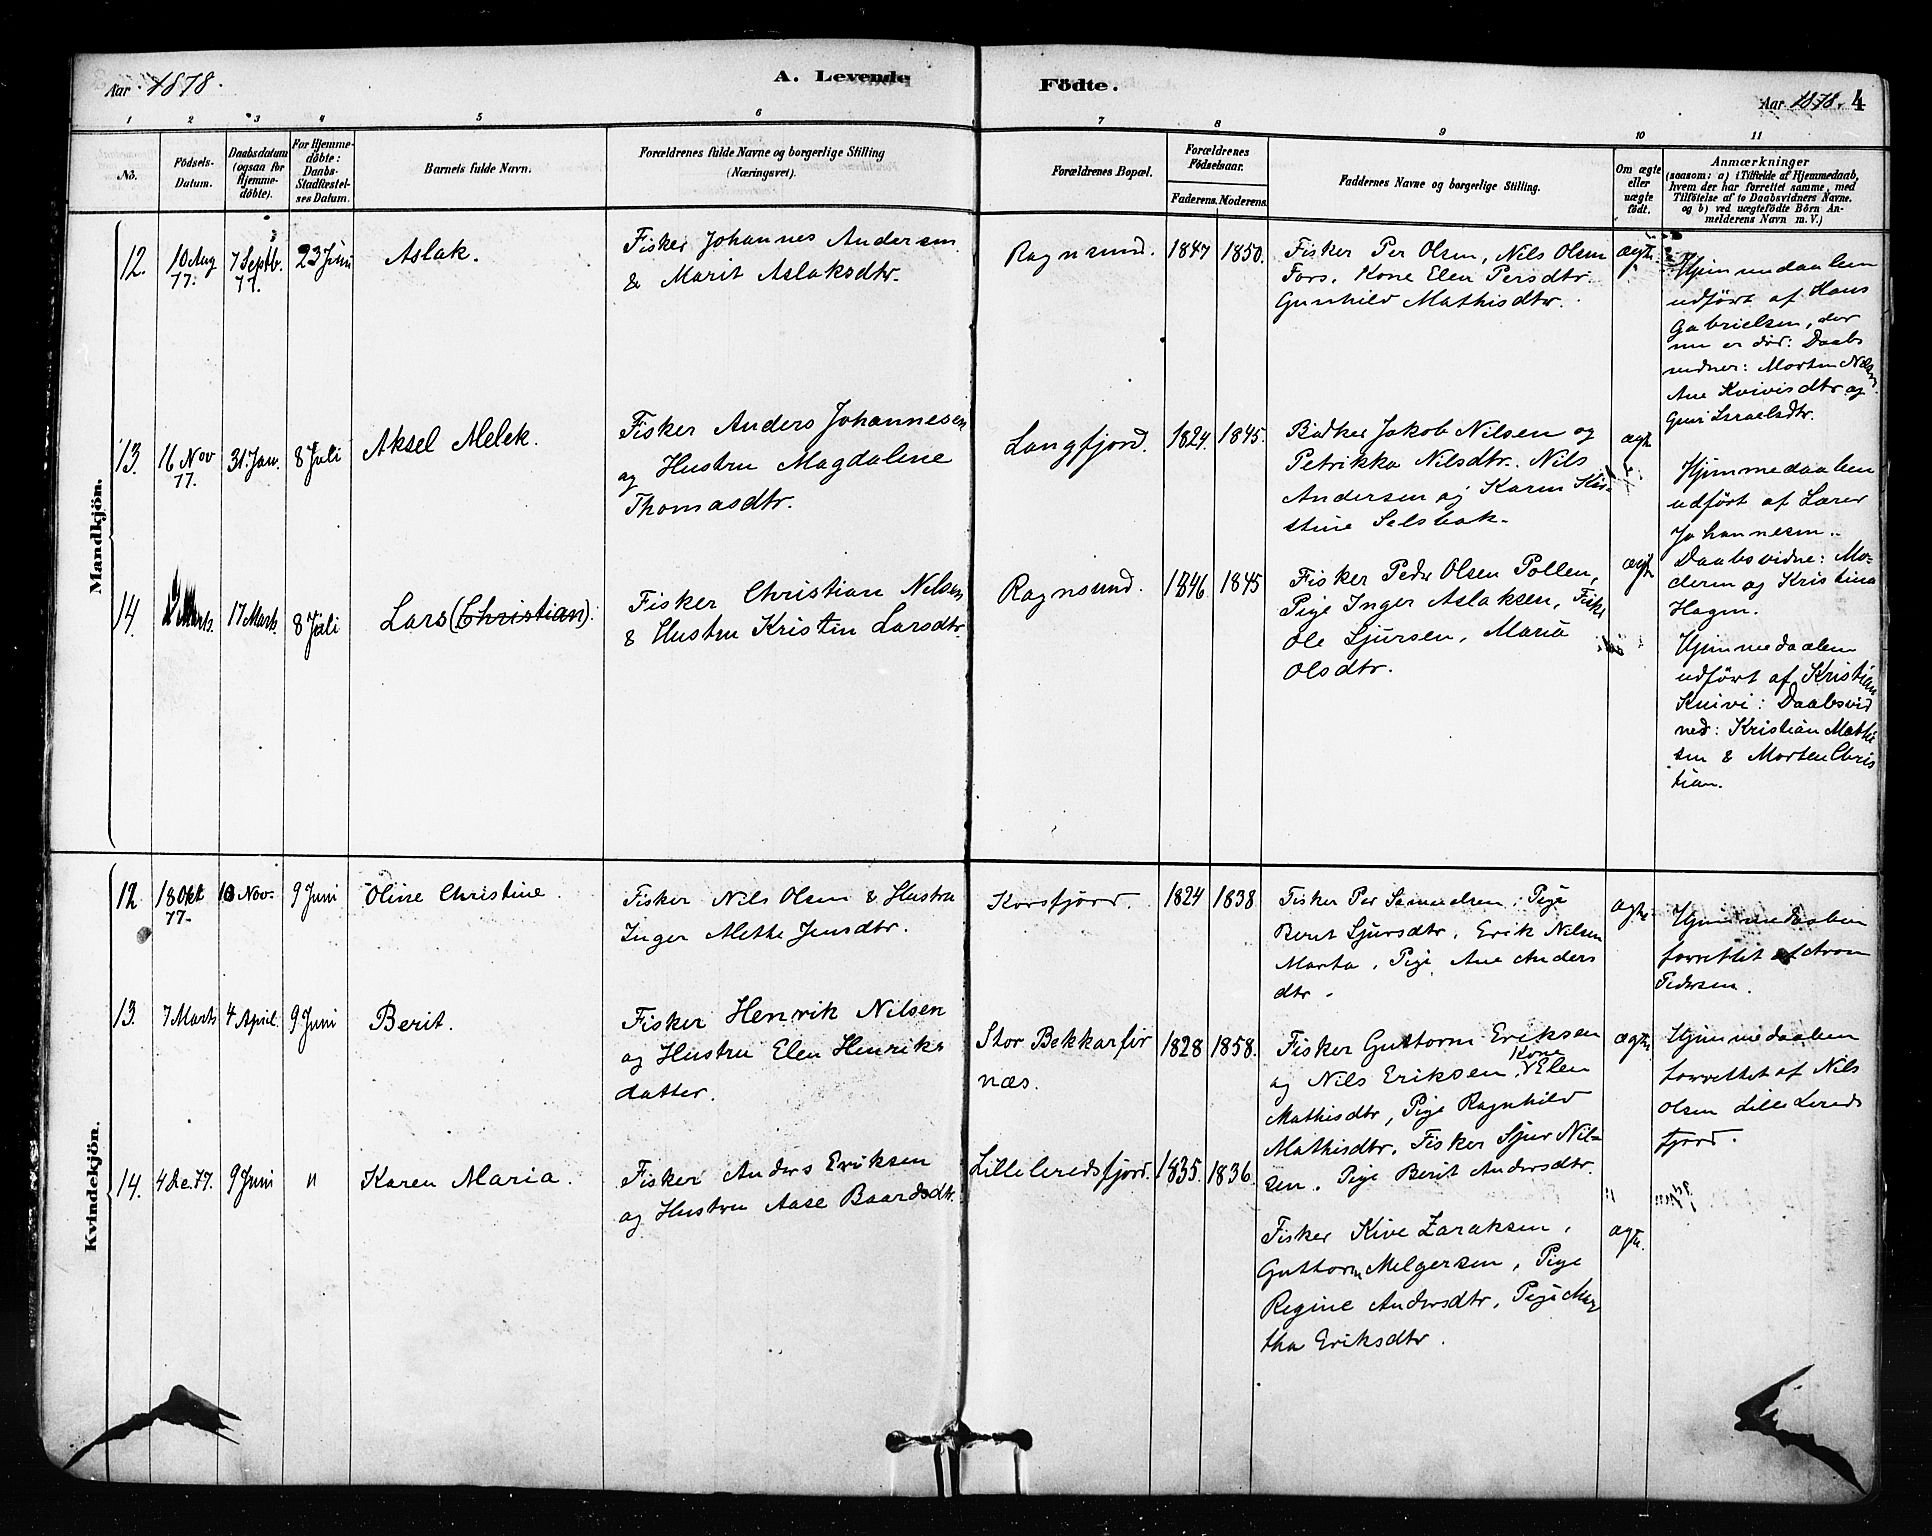 Aar 1878.
A. Levende Födte.
Aar 1878. 4
1 2 3 4 5 6 7 8 9 10 11
No.
Födsels-
Datum.
Daabsdatum
(ogsaa for
Hjemme-
döbte).
For Hjemme-
döbte:
Daabs-
Stadfæstel-
ses Datum.
Barnets fulde Navn.
Forældrenes fulde Navne og borgerlige Stilling
(Næringsvei).
Forældrenes Bopæl.
Forældrenes
Födselsaar.
Faderens. Moderens.
Faddernes Navne og borgerlige Stilling.
Om ægte
eller
uægte
födt.
Anmærkninger
(saasom: a) i Tilfælde af Hjemmedaab,
hvem der har forrettet samme, med
Tilföielse af to Daabsvidners Navne.
og b) ved uægtefödte Börn An-
melderens Navn m. V.)
Mandkjön.
12.
10 Aug
77.
7 Septb.
77.
23 Juni
Aslak.
Fisker Johannes Andersen
& Marit Aslaksdtr.
Ragnsund.
1847
1850.
Fisker Per Olsen, Nils Olsen
Fors, Kone Elen Persdtr.
Gunhild Mathisdtr.
ægte
Hjemmedaaben
udført af Hans
Gabrielsen, der
nu er død: Daabs
vidner: Morten Nilsen
Ane Kvivisdtr og
Guri Israelsdtr.
13.
16 Nov
77.
31 Jan.
8 Juli
Aksel Melek.
Fisker Anders Johannesen
og Hustru Magdalene
Thomasdtr.
Langfjord.
1824.
1845.
Bødker Jakob Nilsen og
Petrikka Nilsdtr. Nils
Andersen og Karen Kir-
stine Selsbak.
ægte
Hjemmedaaben
udført af Lærer
Johannesen.
Daabsvidne: Mo-
deren og Kristina
Hagen.
14.
Marts.
17 Marts.
8 Juli
Lars (Christian).
Fisker Christian Nilsen
& Hustru Kristin Larsdtr.
Ragnsund.
1846.
1845
Fisker Peder Olsen Pollen,
Pige Inger Aslaksen, Fisk
Ole Sjursen, Maria
Olsdtr.
ægte
Hjemmedaaben
udført af Kristian
Kuivi: Daabsvid
ned: Kristian Mathi
sen & Morten Chris
tian.
Kvindekjön.
12.
18 Okt
77.
18 Nov.
9 Juni
Oline Christine.
Fisker Nils Olsen & Hustru
Inger Mette Jensdtr.
Korsfjord.
1824
1838
Fisker Per Samuelsen, Pige
Berit Sjursdtr, Erik Nilsen
Marta, Pige Ane Anders
dtr.
ægte
Hjemmedaaben
forrettet af Aron
Pedersen.
13.
7 Marts
4 April.
9 Juni
Berit.
Fisker Henrik Nilsen
og Hustru Elen Henriks
datter.
Stor Bekkarfjor
næs.
1828
1858.
Fisker Guttorm Eriksen
og Nils Eriksen, Kone Elen
Mathisdtr, Pige Ragnhild
Mathisdtr. Fisker Sjur Nil-
sen. Pige Berit Andersdtr.
ægte
Hjemmedaaben
forrettet af Nils
Olsen Lille Lereds
fjord.
14.
4 De. 77.
9 Juni
"
Karen Maria.
Fisker Anders Eriksen
og Hustru Aase Baardsdtr.
Lilleleredsfjord.
1835.
1836.
Fisker Kive Zaraksen,
Guttorm Melgersen, Pige
Regine Andersdtr, Pige Mar
tha Eriksdtr.
"
ægte.